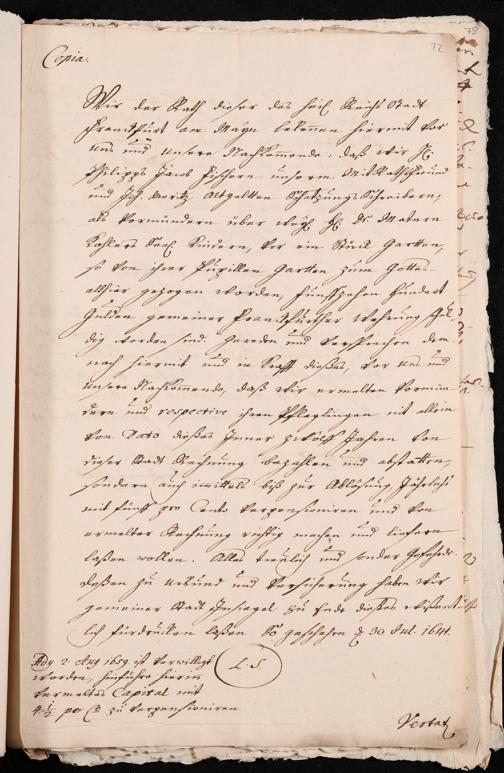 72
Copia.
Wir der Rath dieser des heil. Reichs Stadt
Franckfurt am Mayn bekennen hiermit vor
uns und unsere Nachkommende, daß wir H.
Philipps Jacob Fischern unserm MitRathsfreund
und Joh. Moritz Altgelten Schatzungs Schreibern,
als Vormündern über H. Dr. Matern
Kinder, vor ein Stück Garten,
so von ihrer Pupillen Garten zum Gottes-
allhier gezogen worden, funffzehen hundert
Gulden gemeiner Franckfurther Wehrung schul-
dig worden sind. Gereden und versprechen dem
nach hiermit und in Krafft dießes, vor uns und
unsere Nachkommende, daß wir ermelten Vormün-
dern und respective ihren Pfleglingen nit allein
von Dato dießes inner zwölff Jahren von
dieser Stadt Rechnung bezahlen und abstatten,
sondern auch immittels biß zur Ablößung, Jährlich
mit fünff pro Cento verpensioniren und von
ermelter Rechnung richtig machen und lieffern
laßen wollen. Alles treulich und sonder Gefehrde.
Deßen zu Urkund und Versicherung haben wir
gemeiner Stadt Insiegel zu Ende dießes wißent-
lich fürdrucken laßen. So geschehen d. 30 Jul. 1641.
L. S.
Ady 2. Aug 1659. ist verwilligt
worden, hinführo hierin
vermeltes Capital mit
4½ per C. to verpensioniren
Vertat